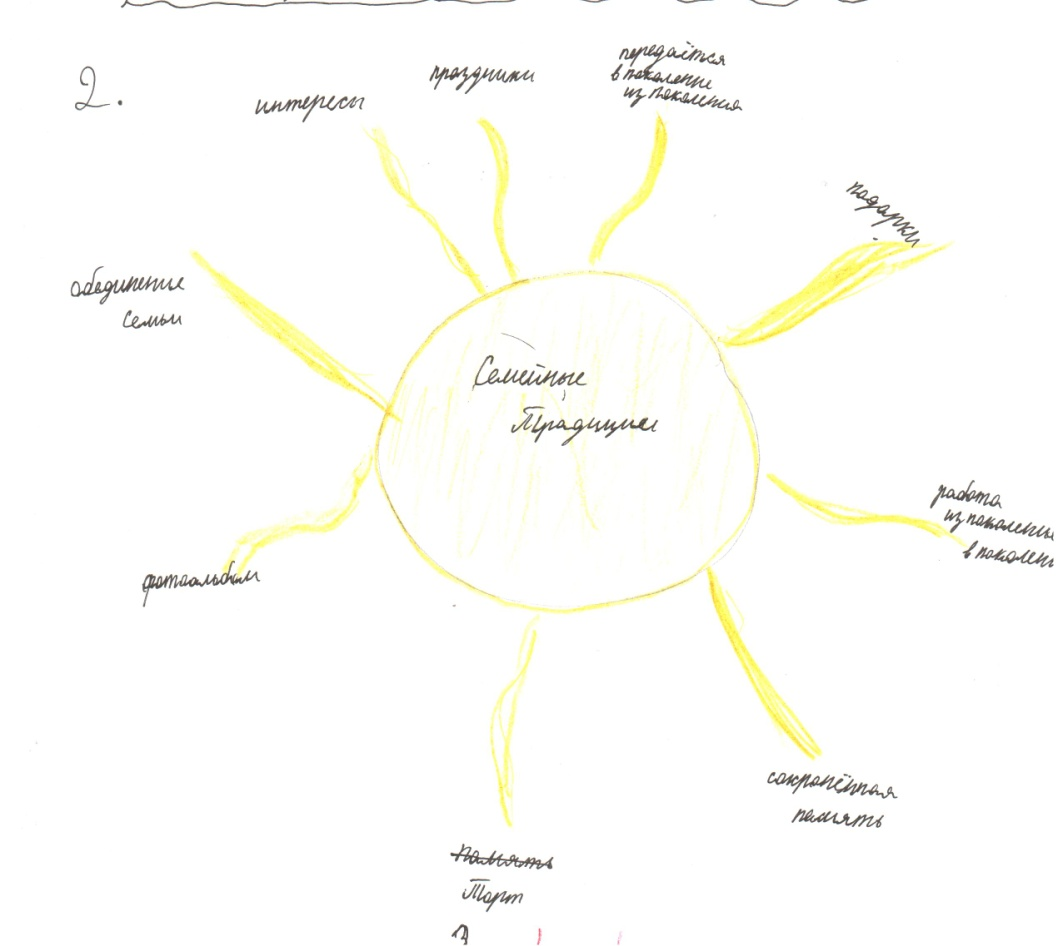 2.
интересы
праздники
передаётся
в поколение
из поколения
подарки
обединение
семьи
Семейные
Традиции
работа
из поколень
в поколен
фотоальбом
сохронённая
память
Память
Торт
3